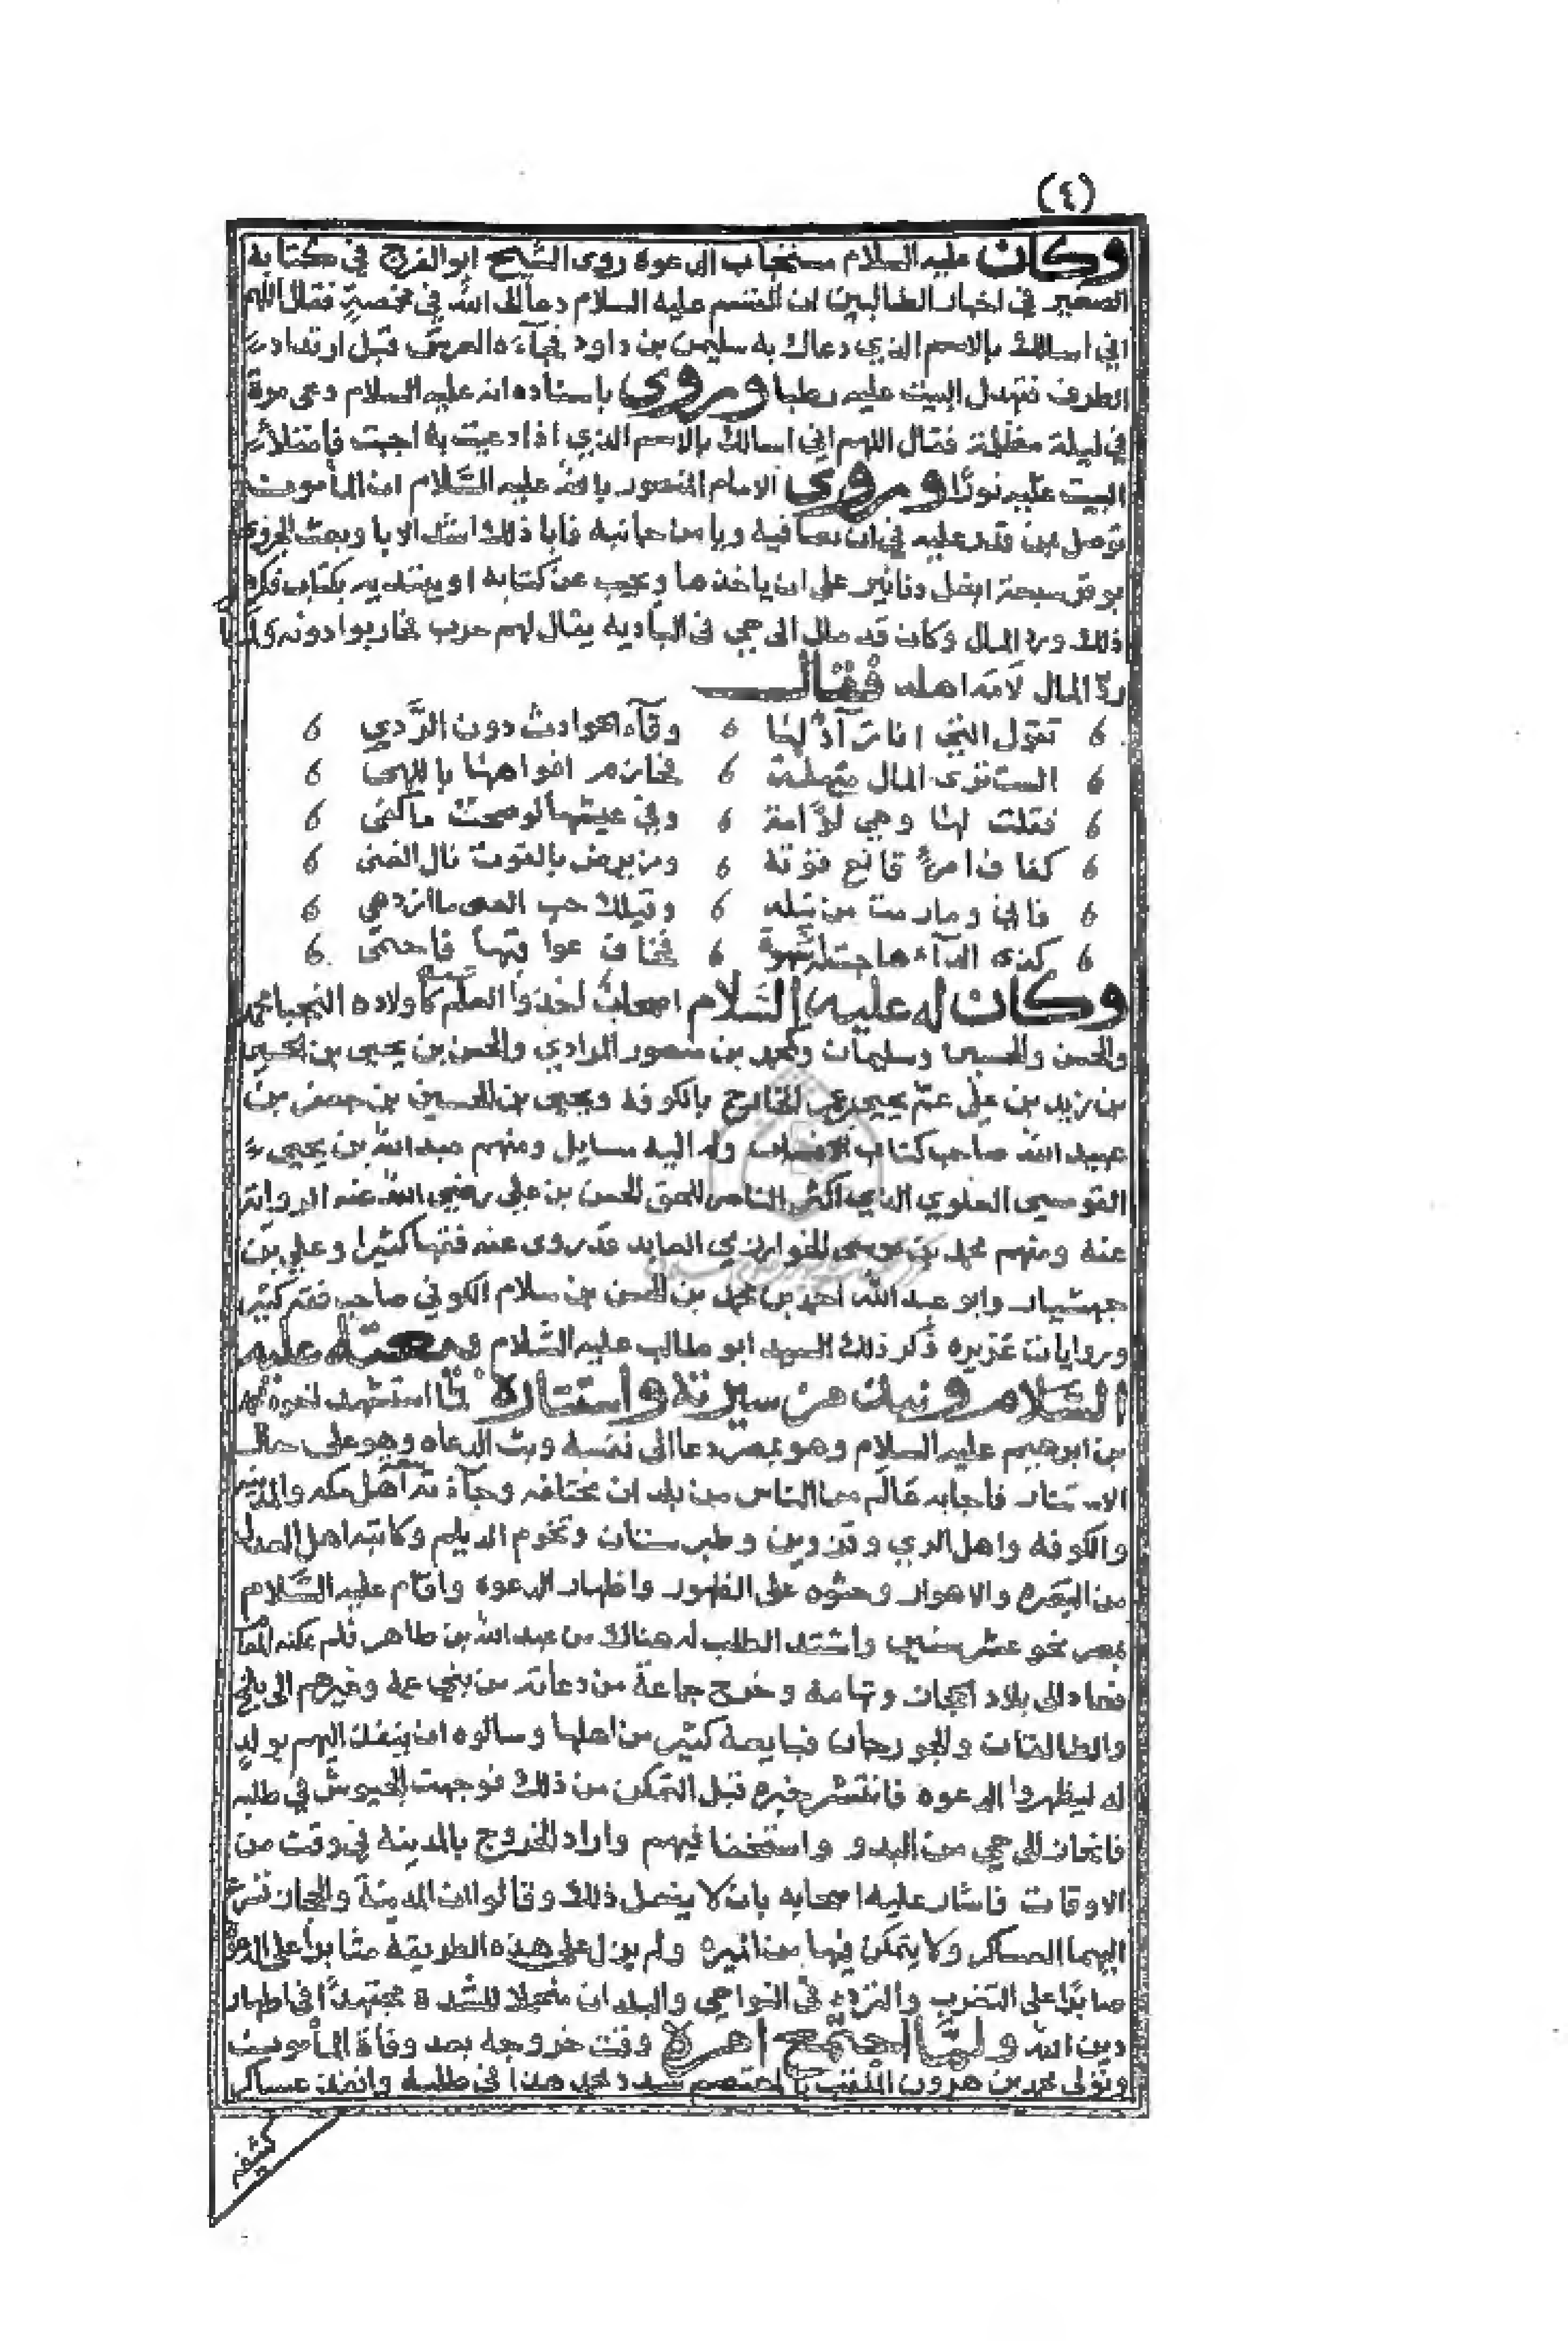 (٤)
وكان عليه السلام مستجاب الدعوه روى الشيخ ابو الفرج في كتابه
الصغير في اخبار الطالبين ان القسم عليه السلام دعا الى الله في مخمصةٍ فقال اللهم
اني اسالك بالاسم الذي دعاك به سليمن بن داود فجآءَه العرش قبل ارتداد
الطرف فتهدل البيت عليه رطبا وروى باسناده انه عليه السلام دعى مرة
في ليلة مظلمة فقال اللهم اني اسالك بالاسم الذي اذا دعيت به اجبت فامتلأ
البيت عليه نورًا وروى الامام المنصور بالله عليه السَّلام ان المأمون
توصل بمن قدر عليه في ان يصافيه ويامن جانبه فابا ذلك اشد الابا وبعث
بوقر سبعة ابغل دنانير على ان ياخذها ويجيب عن كتابه او يبتديه بكتاب فكره
ذلك ورد المال وكان قد مال الى حي في البادية يقال لهم حرب فحاربوا دونه ولما
ردّ المال لامَه اهله فقال
تقول التي انا ردْءٌ لها وقآء الحوادث دون الرَّدي
الست ترى المال منهلة مخارم افواهها باللهى
فقلت لها وهي لوَّامة وفي عيشها لو صحت ما كفى
كفاف امرءٍ قانع قوته ومن يرض بالقوت نال الغنى
فاني وما رمت من نيله وقبلك حب الغنى ما ازدهي
كذى الدآء هاجت له شهوة فخاف عواقبها فاحتمى
وكان له عليه السَّلام اصحاب اخذوا العلم كأولاده النجبا محمد
والحسن والحسين وسليمان ومحمد بن منصور المرادي والحسن بن يحيى بن الحسين
بن زيد بن علي عم يحيى بن عمر الخارج بالكوفه ويحيى بن الحسين بن جعفر بن
عبيد الله صاحب كتاب الانساب وله اليه مسايل ومنهم عبد الله بن يحيى
القومسي العلوي الذي اكثر الناصر للحق الحسن بن علي رضي الله عنه الروايه
عنه ومنهم محمد بن موسى الخوارزمي العابد قد روى عنه فقها كثيرا وعلي بن
جهشيار وابو عبد الله احمد بن محمد بن الحسن بن سلام الكوفي صاحب فقه كثير
وروايات غزيره ذكر ذلك السيد ابو طالب عليه السَّلام وبيعته عليه
السَّلام ونبذ من سيرته واستتاره لما استشهد اخوه محمد
بن ابرهيم عليه السلام وهو بمصر دعا الى نفسه وبث الدعاه وهو على حال
الاستتار فاجابه عَالَم من الناس من بلدان مختلفه وجآءَته بيعة اهل مكه والمدينه
والكوفه واهل الري وقزوين وطبرستان وتخوم الديلم وكاتبه اهل العدل
من البصره والاهواز وحثوه على الظهور واظهار الدعوه واقام عليه السَّلام
بمصر نحو عشر سنين واشتد الطلب له هناك من عبد الله بن طاهر فلم يمكنه المقام
فعاد الى بلاد الحجاز وتهامه وخرج جماعة من دعاته من بني عمه وغيرهم الى بلخ
والطالقان والجوزجان فبايعه كثير من اهلها وسالوه ان ينفذ اليهم بولدٍ
له ليظهروا الدعوه فانتشر خبره قبل التمكن من ذلك فوجهت الجيوش في طلبه
فانحاز الى حي من البدو واستخفا فيهم واراد الخروج بالمدينه في وقت من
الاوقات فاشار عليه اصحابه بان لا يفعل ذلك وقالوا ان المدينة والحجاز تسرع
اليهما العساكر ولا يتمكن فيها من الميره ولم يزل على هذه الطريقه مثابرا على الدعوة
صابرًا على التغرب والتردد في النواحي والبلدان متحملا للشده مجتهدًا في اظهار
دين الله ولمَّا اجتمع امره وقت خروجه بعد وفاة المأمون
وتولى محمد بن هرون الملقب بالمعتصم شدد محمد هذا في طلبه وانفذ عساكر
كثيفه